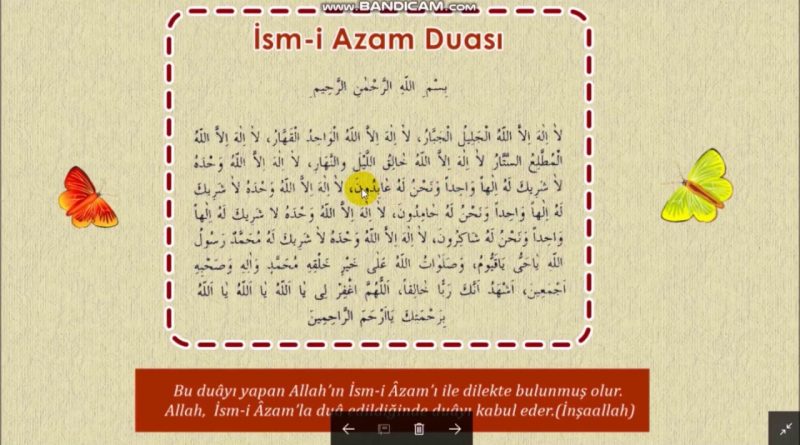 www.BANDICAM.com
İsm-i Azam Duası
بِسْمِ اللّٰهِ الرَّحْمٰنِ الرَّحِيمِ
لاَ اِلٰهَ اِلاَّ اللّٰهُ الْجَلِيلُ الْجَبَّارُ، لاَ اِلٰهَ اِلاَّ اللّٰهُ الْوَاحِدُ الْقَهَّارُ، لاَ اِلٰهَ اِلاَّ اللّٰهُ
الْمُطَّلِعُ السَّتَّارُ لاَ اِلٰهَ اِلاَّ اللّٰهُ خَالِقُ اللَّيْلِ والنَّهَارِ، لاَ اِلٰهَ اِلاَّ اللّٰهُ وَحْدَهُ
لاَ شَرِيكَ لَهُ اِلٰهاً وَاحِداً وَنَحْنُ لَهُ عَابِدُونَ، لاَ اِلٰهَ اِلاَّ اللّٰهُ وَحْدَهُ لاَ شَرِيكَ
لَهُ اِلٰهاً وَاحِداً وَنَحْنُ لَهُ حَامِدُونَ، لاَ اِلٰهَ اِلاَّ اللّٰهُ وَحْدَهُ لاَ شَرِيكَ لَهُ اِلٰهاً
وَاحِداً وَنَحْنُ لَهُ شَاكِرُونَ، لاَ اِلٰهَ اِلاَّ اللّٰهُ وَحْدَهُ لاَ شَرِيكَ لَهُ مُحَمَّدٌ رَسُولُ
اللّٰهِ يَاحَىُّ يَاقَيُّومُ، وَصَلَوَاتُ اللّٰهِ عَلٰى خَيْرِ خَلْقِهِ مُحَمَّدٍ وَاٰلِهِ وَصَحْبِهِ
اَجْمَعِينَ، اَشْهَدُ اَنَّكَ رَبًّا خَالِقاً، اَللّٰهُمَّ اغْفِرْ لِى يَا اَللّٰهُ يَا اَللّٰهُ يَا اَللّٰهُ
بِرَحْمَتِكَ يَااَرْحَمَ الرَّاحِمِينَ
Bu duâyı yapan Allah'ın İsm-i Âzam'ı ile dilekte bulunmuş olur.
Allah, İsm-i Âzam'la duâ edildiğinde duâyı kabul eder.(İnşaallah)